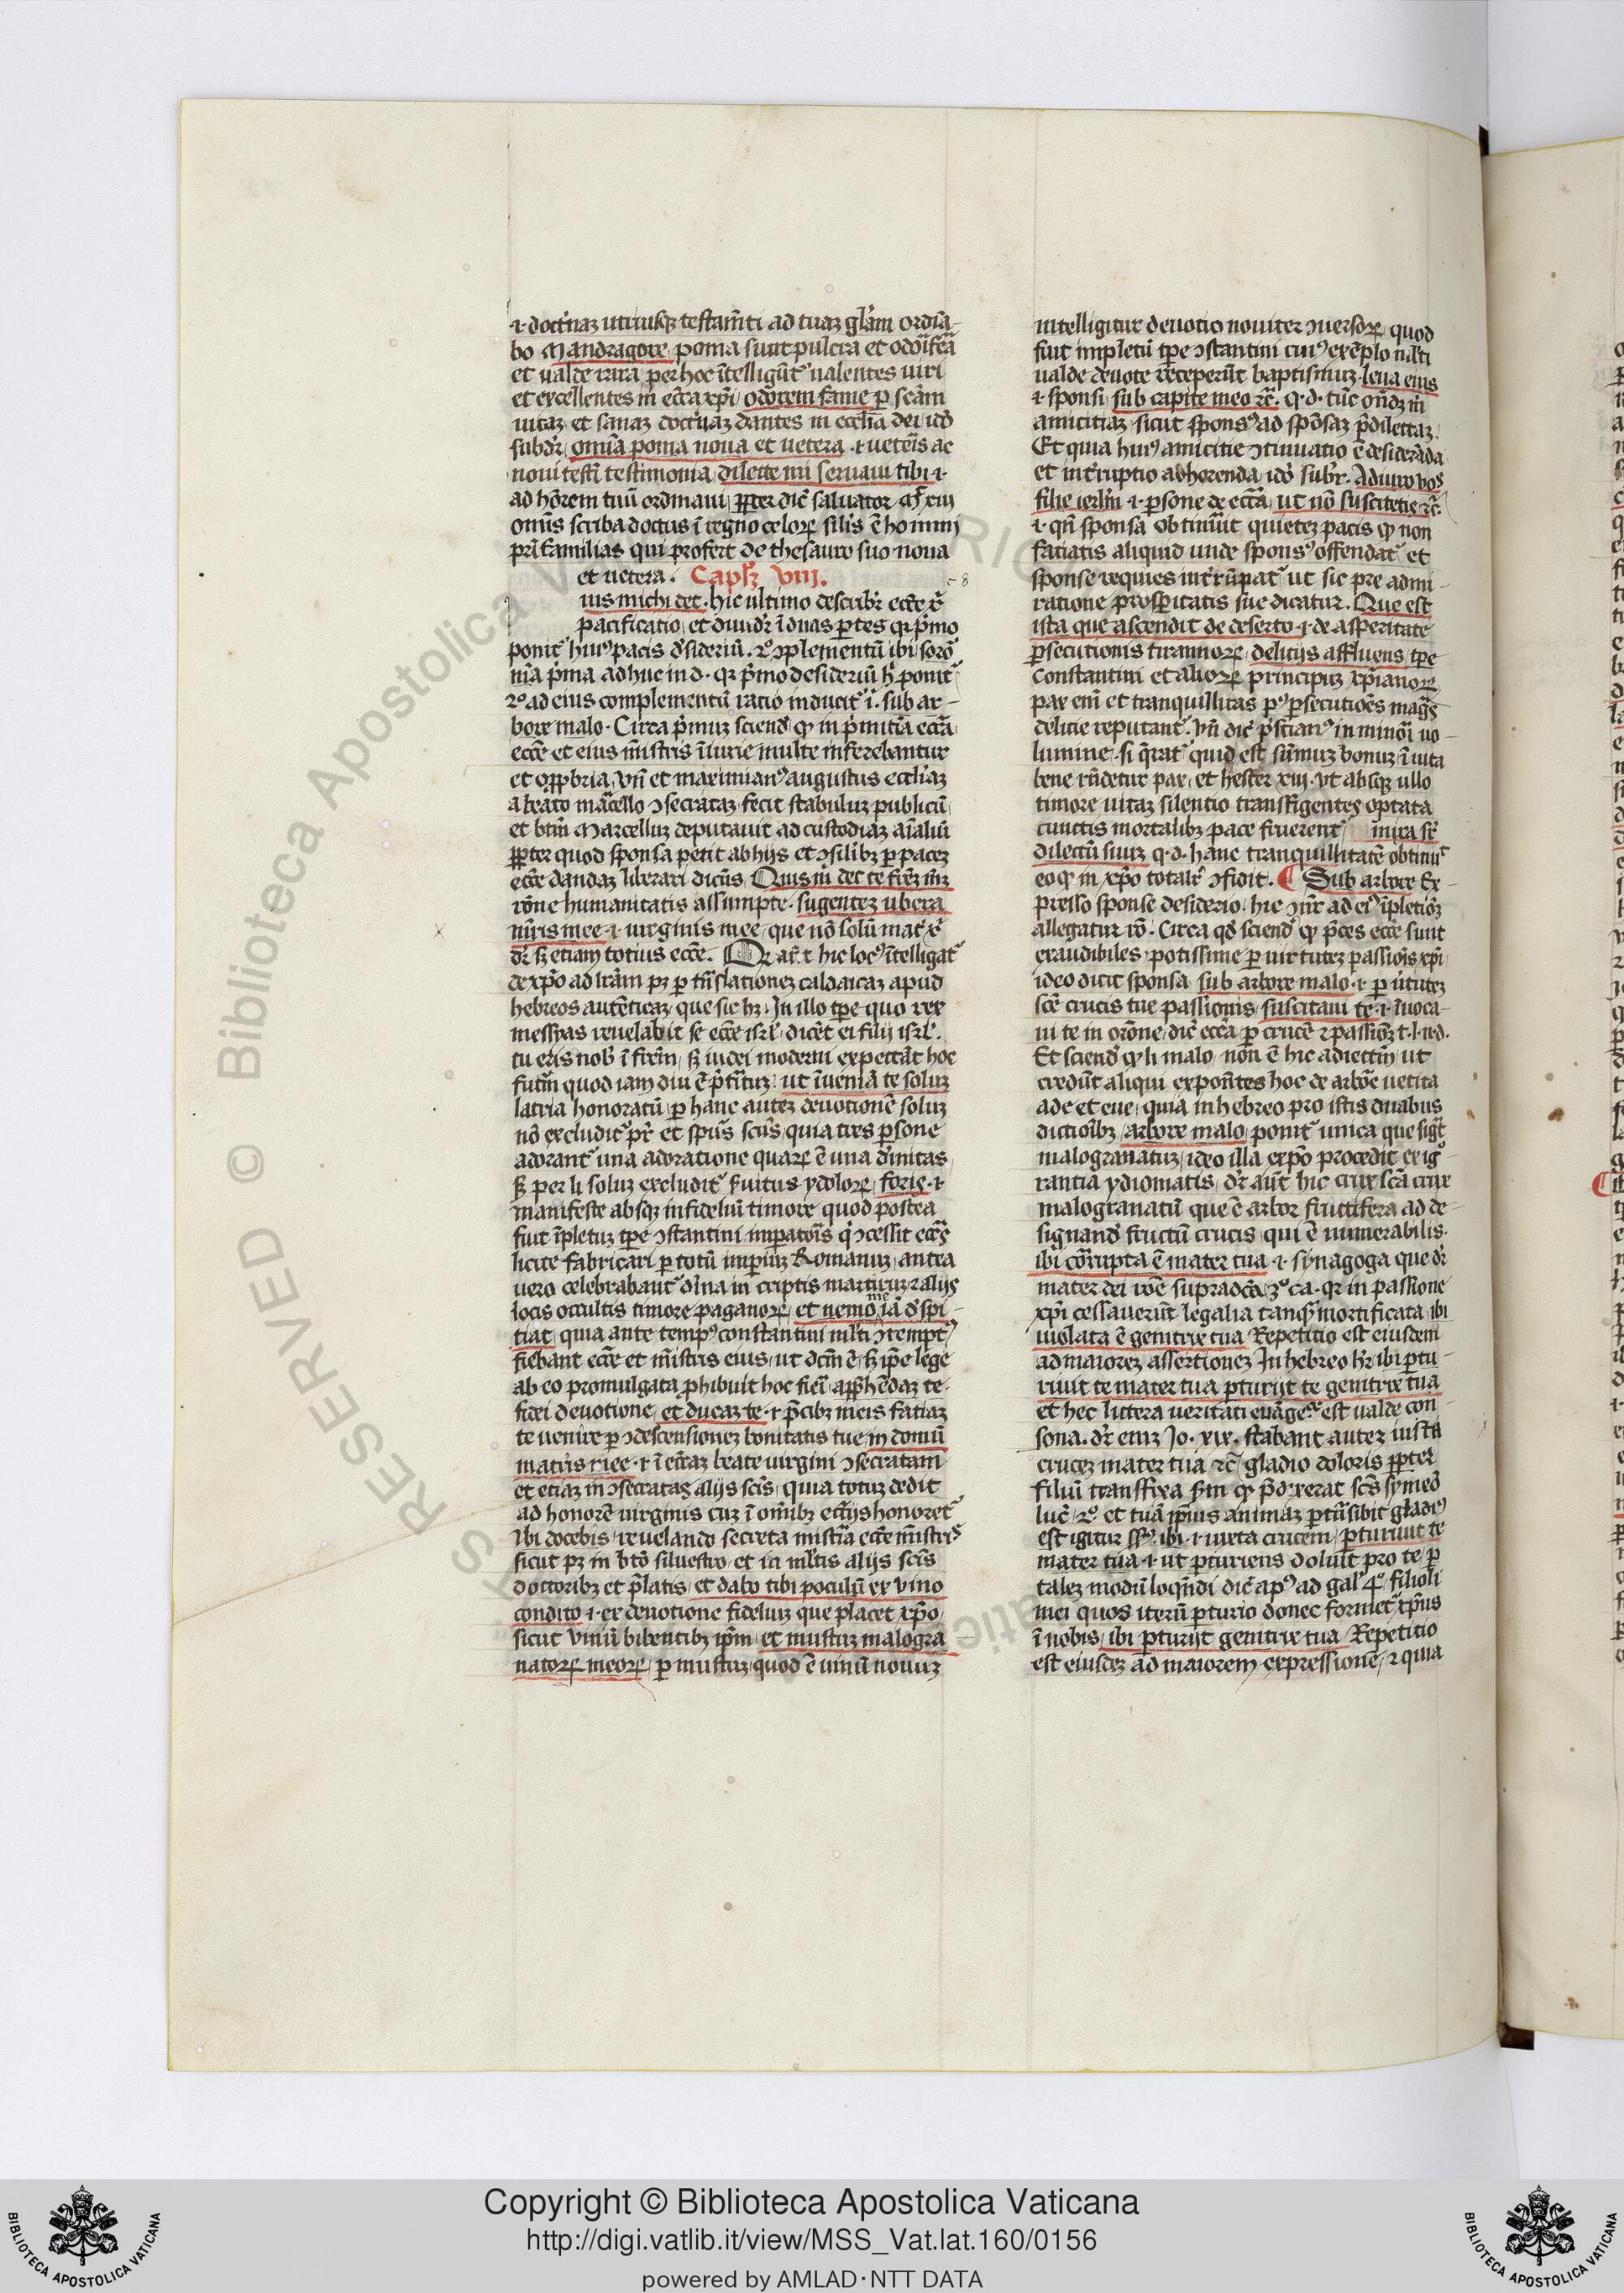 .i. doctᵢnaꝫ utriusqꝫ testam̄ti ad tuaꝫ gl̄am ordīa-
bo Mandragore, poma sunt pulcra et odoīfea
et ualde rara, per hoc ītelligūtᵘ ualentes uiri
et excellentes in ecc̄a xp̄i, odorem fame ꝑ sc̄am
uitaꝫ et sanaꝫ doctᵢnaꝫ dantes in eccl̄ia dei ido
subdr̄, omīa poma noua et uetera .i. ueteīs ac
noui testī testimonia, dilecte mi seruaui tibi .i.
ad hōrem tuū ordinaui, ꝓpter dic̄ saluator Mᵗ xiii
omīs scriba doctus ī regno celoꝝ sil̄is ē homini
pr̄ifamilias qui profert de thesauro suo noua
et uetera. Capᵐ viii.
uis michi det. hic ultimo describr̄ ecc̄e xᵢ
pacificatio, et diuidr̄ ī duas ꝑtes qꝛ pͥmo
ponitᵘ huiꝰ pacis dˀsideriū. 2ͦ ↄplementū ibi soro
nr̄a pͥma adhuc in d. qꝛ pͥmo desideriū hͥ ponitᵘ
2ͦ ad eius complementū ratio inducitᵘ ī. sub ar-
bore malo. Circa pͥmuꝫ sciendˀ ꝙ in pͥmitīa ecc̄a
ecc̄e et eius mīstris īiurie multe inferebantur
et opꝓbria, vn̄ et maximianꝰ augustus eccl̄iaꝫ
a beato mᵃcello ↄsecrataꝫ fecit stabuluꝫ publicū
et btm̄ Marcelluꝫ deputauit ad custodiaꝫ aīaliū
ꝓpter quod sponsa petit ab hijs et ↄsilibꝫ ꝑ paceꝫ
ecc̄e dandaꝫ liberari dicēs, Quis m̄ det te frēꝫ mꝫ
rōne humanitatis assumpte. sugenteꝫ ubera
mr̄is mee .i. uirginis mee, que nō solū matˀ xᵢ
dr̄ sꝫ etiam totius ecc̄e. Qꝛ at̄ hic locꝰ ītelligatᵘ
de xp̄o ad lr̄am pꝫ ꝑ trn̄slationeꝫ caldaicaꝫ apud
hebreos autēticaꝫ, que sic hꝫ. In illo tp̄e quo rex
messyas reuelabit se ecc̄e isrl̄, dicēt ei filij isrl̄.
tu eris nob̄ ī fr̄em, sꝫ iudei moderni expectāt hoc
futᵐ quod iam diu ē pͥtᵢtuꝫ, ut īueniā te soluꝫ
latria honoratū, ꝑ hanc auteꝫ deuotionē soluꝫ
nō excluditᵘ pr̄ et spūs sc̄us, quia tres ꝑsone
adorantᵘ una adoratione quaꝝ ē una dīnitas
sꝫ per li soluꝫ excluditᵘ sˀuitus ydoloꝝ, foris .i.
manifeste absqꝫ infideliū timore quod postea
fuit īpletuꝫ tp̄e ↄstantini imꝑatoīs qͥ ↄcessit eccᵃs
licite fabricari ꝑ totū imꝑiuꝫ Romanuꝫ, antea
uero celebrabant dīna in criptis martiruꝫ ⁊ alijs
locis occultis timore paganoꝝ, et nemo me iā dˀspi-
tiat, quia ante tempꝰ constantini ml̄ti ↄtemptꝰ
fiebant ecc̄e et mīstris eius, ut dcm̄ ē, sꝫ ip̄e lege
ab eo promulgata ꝓhibuit hoc fieī, apprehēdaꝫ te.
fidei deuotione, et ducaꝫ te .i. pͤcibꝫ meis fatiaꝫ
te uenire ꝑ ↄdescensioneꝫ bonitatis tue, in domū
matris mee .i. ī ecc̄aꝫ beate uirgini ↄsecratam
et etiaꝫ in ↄsecratas alijs sc̄is, quia totuꝫ dedit
ad honorē uirginis cuꝫ ī om̄ibꝫ ecc̄ijs honoretᵘ
ibi docebis, reuelando secreta mistīa ecc̄e mīstrꝭ
sicut pꝫ in btō siluestro, et in ml̄tis alijs sc̄is
doctoribꝫ et p̄latis, et dabo tibi poculū ex vino
condito .i. ex deuotione fideliuꝫ que placet xp̄o,
sicut vinū bibentibꝫ ip̄m, et mustuꝫ malogra
natoꝝ meoꝝ, ꝑ mustuꝫ, quod ē uinū nouuꝫ
intelligitur deuotio nouiter ↄuersoꝝ, quod
fuit impletū tp̄e ↄstantini cuiꝰ exēplo ml̄ti
ualde deuote receperūt baptismuꝫ. leua eius
.i. sponsi, sub capite meo ⁊c̄. q.d. tūc on̄dꝫ m̄
amicitiaꝫ sicut sponsꝰ ad spōsaꝫ p̄dilectaꝫ.
Et quia huiꝰ amicitie ↄtinuatio ē desiderāda
et intˀruptio abhorenda, ido subr̄. Adiuro vos
filie ierlm̄ .i. ꝑsone de ecc̄a, ut nō suscitetis ⁊c̄.
.i. qn̄ sponsa obtinuit quieteꝫ pacis ꝙ non
faciatis aliquid unde sponsꝰ offendatᵘ et
sponse requies intˀrūpatᵘ, ut sic pre admi-
ratione prosꝑitatis sue dicatur. Que est
ista que ascendit de deserto .i. de asperitate
ꝑsecutionis tirannoꝝ, delicijs affluens, tp̄e
constantini et alioꝝ principuꝫ xp̄ianoꝝ,
pax enī et tranquillitas pꝰ ꝑsecutiōes maḡs
delicie reputantᵘ. vn̄ dic̄ pͥscianꝰ in minoī uo-
lumine. si qͣratᵘ quid est sūmuꝫ bonuꝫ ī uita
bene rn̄detur pax, et hester xiii. vt absqꝫ ullo
timore uitaꝫ silentio transigentes optata
cunctis mortalibꝫ pace fruerentᵘ, inixa sr̄
dilectū suuꝫ q.d. hanc tranquillitatē obtinuͭ
eo ꝙ in xp̄o totalr̄ ↄfidit. ¶ Sub arbore Ex-
presso sponse desiderio, hic ↄnr̄ ad eiꝰ īpletiōꝫ
allegatur rō. Circa qd̄ sciendˀ ꝙ pͤces ecc̄e sunt
exaudibiles, potissime ꝑ uirtuteꝫ passiōis xp̄i,
ideo dicit sponsa, sub arbore malo .i. ꝑ uͥtuteꝫ
sc̄e crucis tue passionis, suscitaui te .i. īuoca-
ui te in orōne, dic̄ ecc̄a ꝑ crucē ⁊ passiōꝫ t.l.n.d.
Et sciendˀ ꝙ li malo, non ē hic adiectiū, ut
credūt aliqui exponētes hoc de arbore uetita
ade et eue, quia in hebreo pro istis duabus
dictioībꝫ, arbore malo, ponitᵘ unica que sigᵗ
malogranatuꝫ, ideo illa expō procedit ex igͦ-
rantia ydiomatis, dr̄ aūt hic crux sc̄a crux
malogranatū que ē arbor fructifera ad de-
signandˀ fructū crucis, qui ē inumerabilis.
ibi corrupta ē mater tua .i. synagoga que dr̄
mater dei rōe supradc̄a, 3ͦ ca. qꝛ in passione
xp̄i cessauerūt legalia tanqᵃ mortificata, ibi
uiolata ē genitrix tua, Repetitio est eiusdem
ad maioreꝫ assertioneꝫ In hebreo hr̄, ibi ꝑtu-
riuit te mater tua, ꝑturijt te genitrix tua
et hec littera ueritati euāgeᵉ est ualde con-
sona. dr̄ eniꝫ Jo. xix. stabant auteꝫ iuxta
cruceꝫ mater tua ⁊c̄, gladio doloris ꝓpter
filiū transfixa sm̄ ꝙ p̄dixerat sc̄s symeō
luc̄. 2ͦ. et tuā ip̄ius animaꝫ ꝑtrn̄sibit gladiꝰ
est igitur sēsꝰ. ibi .i. iuxta crucem, ꝑturiuit te
mater tua .i. ut ꝑturiens doluit pro te, ꝑ
taleꝫ modū loqn̄di dic̄ apꝰ ad gal̄ 4ͦ. filioli
mei quos iterū ꝑturio donec formetᵘ xp̄us
ī uobis, ibi ꝑturijt genitrix tua, Repetitio
est eiusdeꝫ ad maiorem expressionē, ⁊ quia
Copyright © Biblioteca Apostolica Vaticana
http://digi.vatlib.it/view/MSS_Vat.lat.160/0156
powered by AMLAD · NTT DATA
BIBLIOTECA APOSTOLICA VATICANA
BIBLIOTECA APOSTOLICA VATICANA